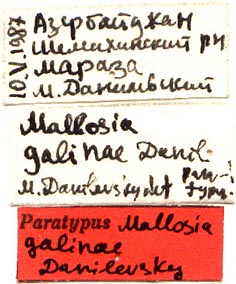 10.V.1987
Азербайджан
Шемахинский рн
Мараза
М. Данилевский
Mallosia
galinae Danil.
M. Danilevsky det para-
typ.
Paratypus Mallosia
galinae
Danilevsky